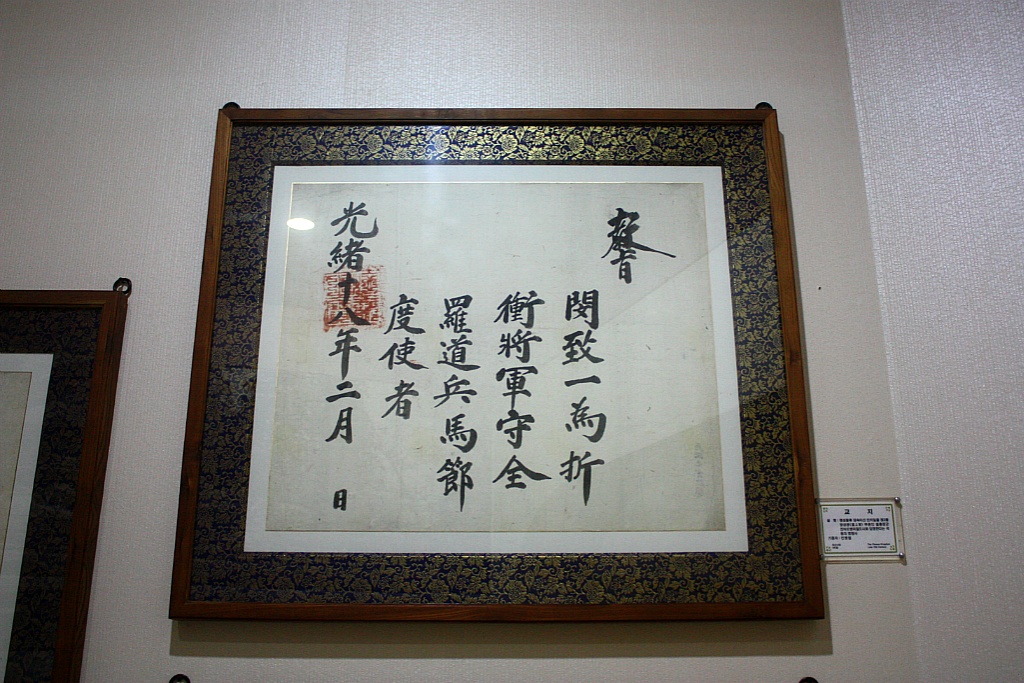 教旨
閔致一為折
衝將軍守全
羅道兵馬節
度使者
光緒十八年二月 日
교지